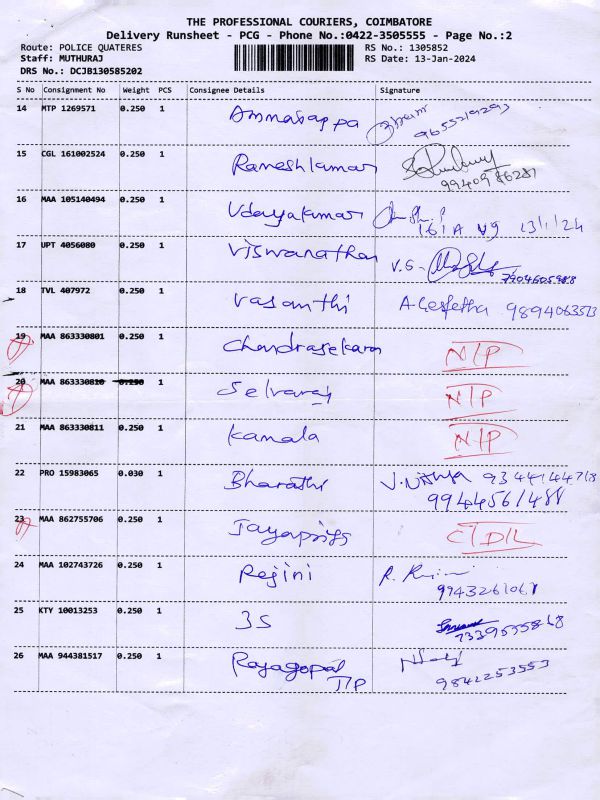 THE PROFESSIONAL COURIERS, COIMBATORE
Delivery Runsheet - PCG - Phone No.:0422-3505555 - Page No.:2
Route: POLICE QUATERES RS No.: 1305852
Staff: MUTHURAJ RS Date: 13-Jan-2024
DRS No.: DCJB130585202
S No Consignment No Weight PCS Consignee Details Signature
14 MTP 1269571 0.250 1 Ammasappa
15 CGL 161002524 0.250 1 Rameshkumar
9940986287
16 MAA 105140494 0.250 1 Udayakumar
161 A V9 13/1/24
17 UPT 4056080 0.250 1 Viswanathan V.S.
18 TVL 407972 0.250 1 Vasanthi 9894063573
19 MAA 863330801 0.250 1 Chandrasekaran N/P
20 MAA 863330810 0.250 1 Selvaraj N/P
21 MAA 863330811 0.250 1 Kamala N/P
22 PRO 15983065 0.030 1 Bharathi V. Nithya
9944561488
23 MAA 862755706 0.250 1 Jayapriya C/D/L
24 MAA 102743726 0.250 1 Rejini R. Rejini
25 KTY 10013253 0.250 1 3S
26 MAA 944381517 0.250 1 Rajagopal
T/P 9842253553